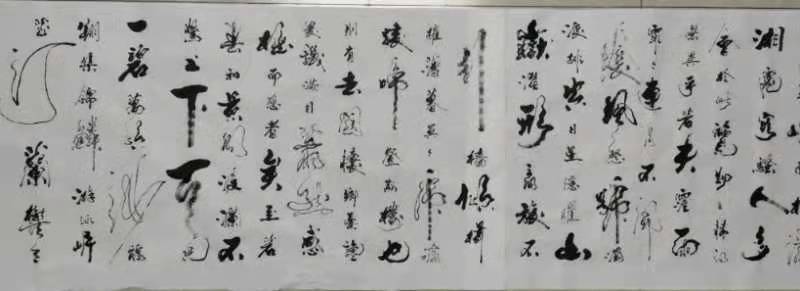 湘遷客騷人多
會於此覽物之情得
無異乎若夫霪雨
霏霏連月不開
陰風怒號濁
浪排空日星隱耀山
嶽潛形商旅不
行檣傾楫
摧薄暮冥冥虎嘯
猿啼登斯樓也
則有去國懷鄉憂讒
畏譏滿目蕭然感
極而悲者矣至若
春和景明波瀾不
驚上下天光
一碧萬頃沙鷗
翔集錦鱗游泳岸
芷汀蘭鬱鬱